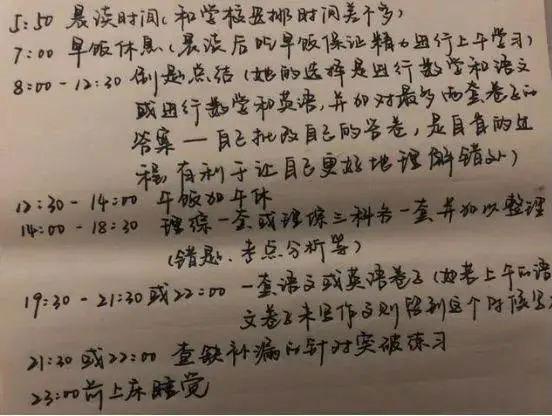 5:50 晨读时间(和学校安排时间差不多)
7:00 早饭休息(晨读后吃早饭保证精力进行上午学习)
8:00-12:30 刷题总结(她的选择是进行数学和语文
或进行数学和英语,并加对最多两套卷子的
答案—自己批改自己的答卷,是自省的过
程,有利于让自己更好地理解错处)
12:30-14:00 午饭加午休
14:00-18:30 理综一套或理综三科各一套并加以整理
(错题、考点分析等)
19:30-21:30或22:00 一套语文或英语卷子(如若上午的语
文卷子未写作文则留到这个时候写
21:30或22:00 查缺补漏的针对突破练习
23:00前上床睡觉